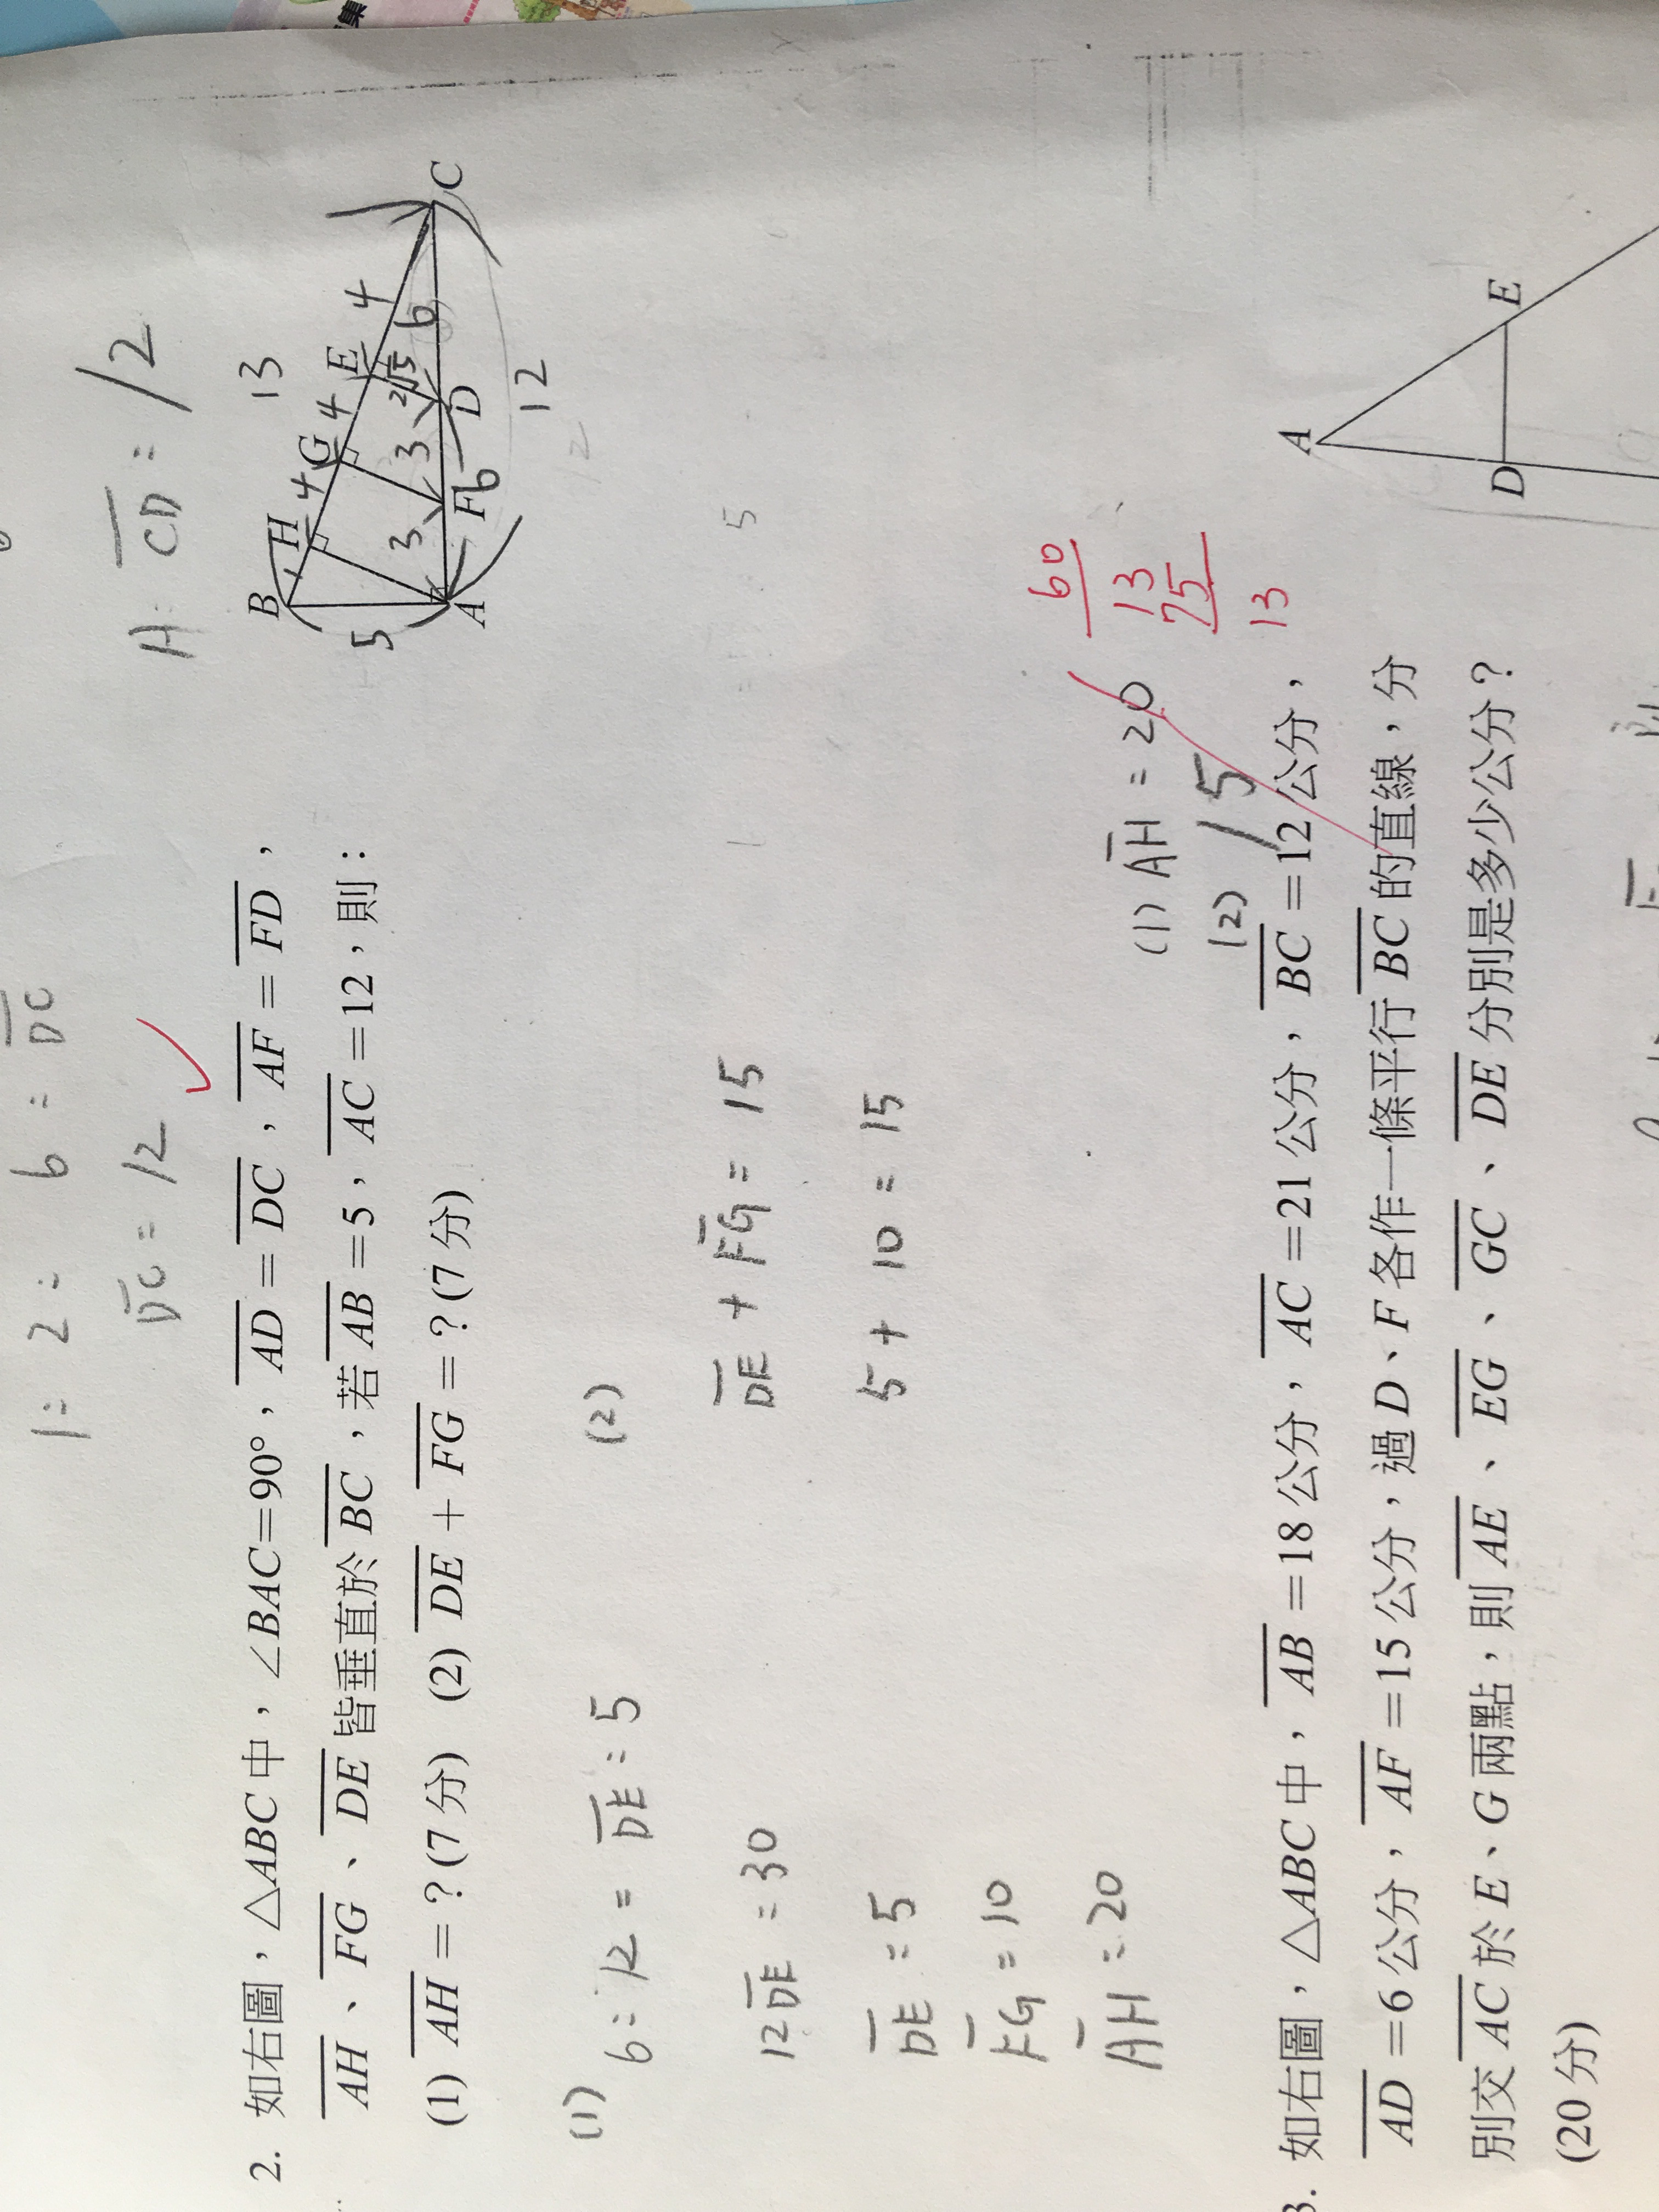 1:2=6:DC
DC=12
A:CD=12
2. 如右圖，△ABC中，∠BAC=90°，AD=DC，AF=FD，
AH、FG、DE皆垂直於BC，若AB=5，AC=12，則：
(1) AH=？(7分) (2) DE+FG=？(7分)
B
H
4
G
4
E
4
C
13
5
A
3
F
3
D
6
6
12
(1)
6:12=DE:5
12DE=30
DE=5
FG=10
AH=20
(2)
DE+FG=15
5+10=15
(1) AH=20
(2) 15
60
13
75
13
3. 如右圖，△ABC中，AB=18公分，AC=21公分，BC=12公分，
AD=6公分，AF=15公分，過D、F各作一條平行BC的直線，分
別交AC於E、G兩點，則AE、EG、GC、DE分別是多少公分？
(20分)
A
D
E